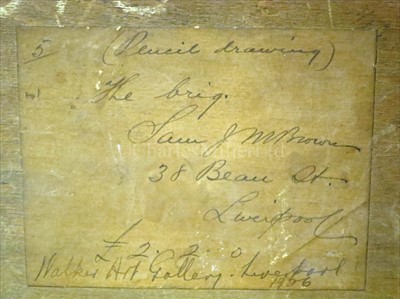 5 (Pencil drawing)
The brig.
Sam J M Brown
38 Bean St.
Liverpool
£ 2. 2. 0
Walker Art Gallery. Liverpool
1926